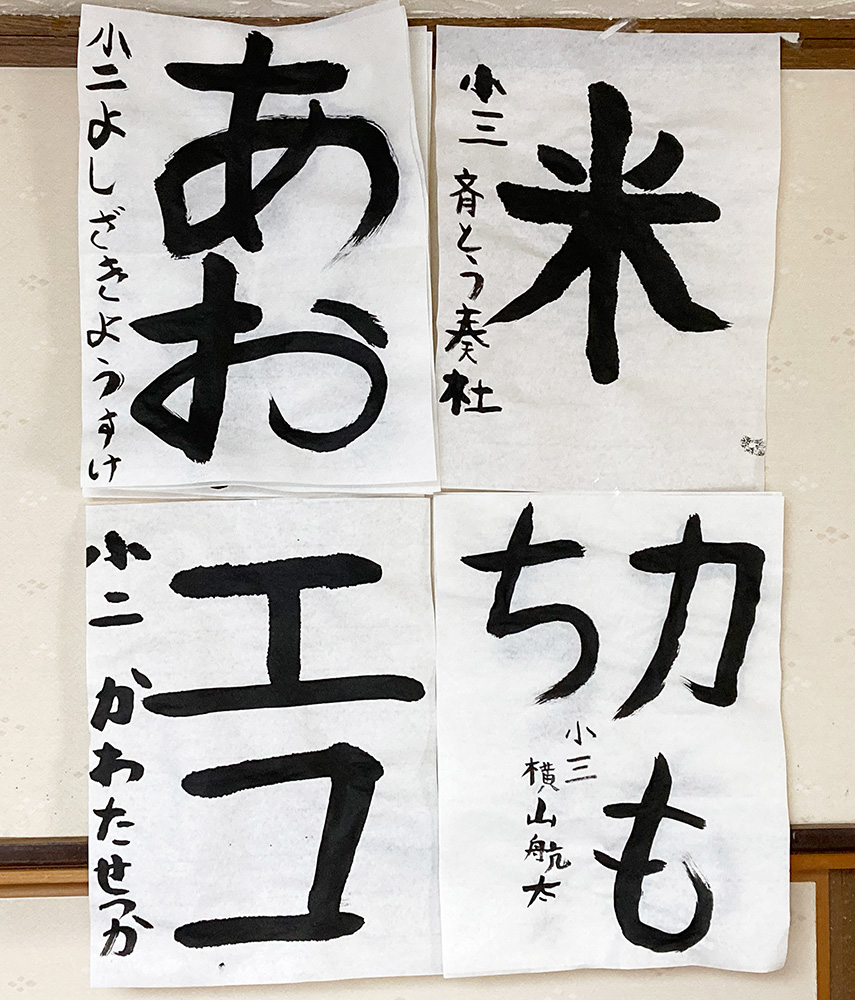 米
小三 斉とう奏杜
あお
小二よしざきようすけ
力も
ち
小三
横山航太
エコ
小二 かわたせつか